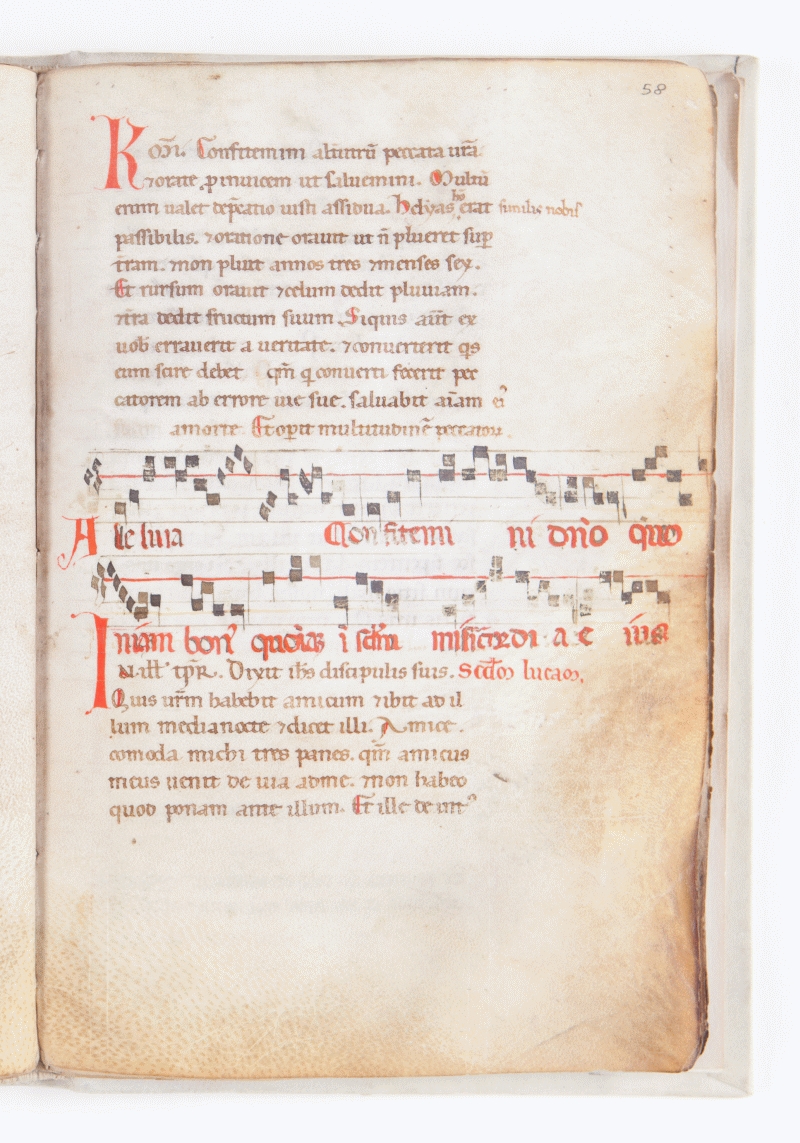 58
Kmi. Confitemini alt͛utrū peccata ur̄a
⁊orate ꝓ inuicem ut saluemini. Multū
enim ualet dep̄catio iusti assidua. helyas hō erat similis nobis
passibilis. ⁊oratione orauit ut n̄ plueret suꝑ
t̄ram. ⁊non pluit annos tres ⁊menses sex.
Et rursum orauit ⁊celum dedit pluuiam.
⁊t̄ra dedit fructum suum. Siquis aūt ex
uob̄ errauerit a ueritate. ⁊conuerterit q̄s
eum scire debet qm̄ q conuerti fecerit pec
catorem ab errore uie sue. saluabit aīam ei᾽
amorte. Et opit multitudinē peccatorū.
Alleluia Confitemi ni dn̄o qm̄o
niam bon᾽ quoniā ī sc̄lm misic̄ordi a e ius
In ill᾽ tp̄r. Dixit ih̄s discipulis suis. Scd̄m lucam.
Quis ur̄m habebit amicum ⁊ibit ad il
lum medianocte ⁊dicet illi. Amice.
comoda michi tres panes. qm̄ amicus
meus uenit de uia adme. ⁊non habeo
quod ponam ante illum. Et ille de int᾽